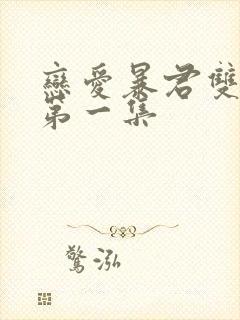 戀愛暴君雙
第一集
驚泓